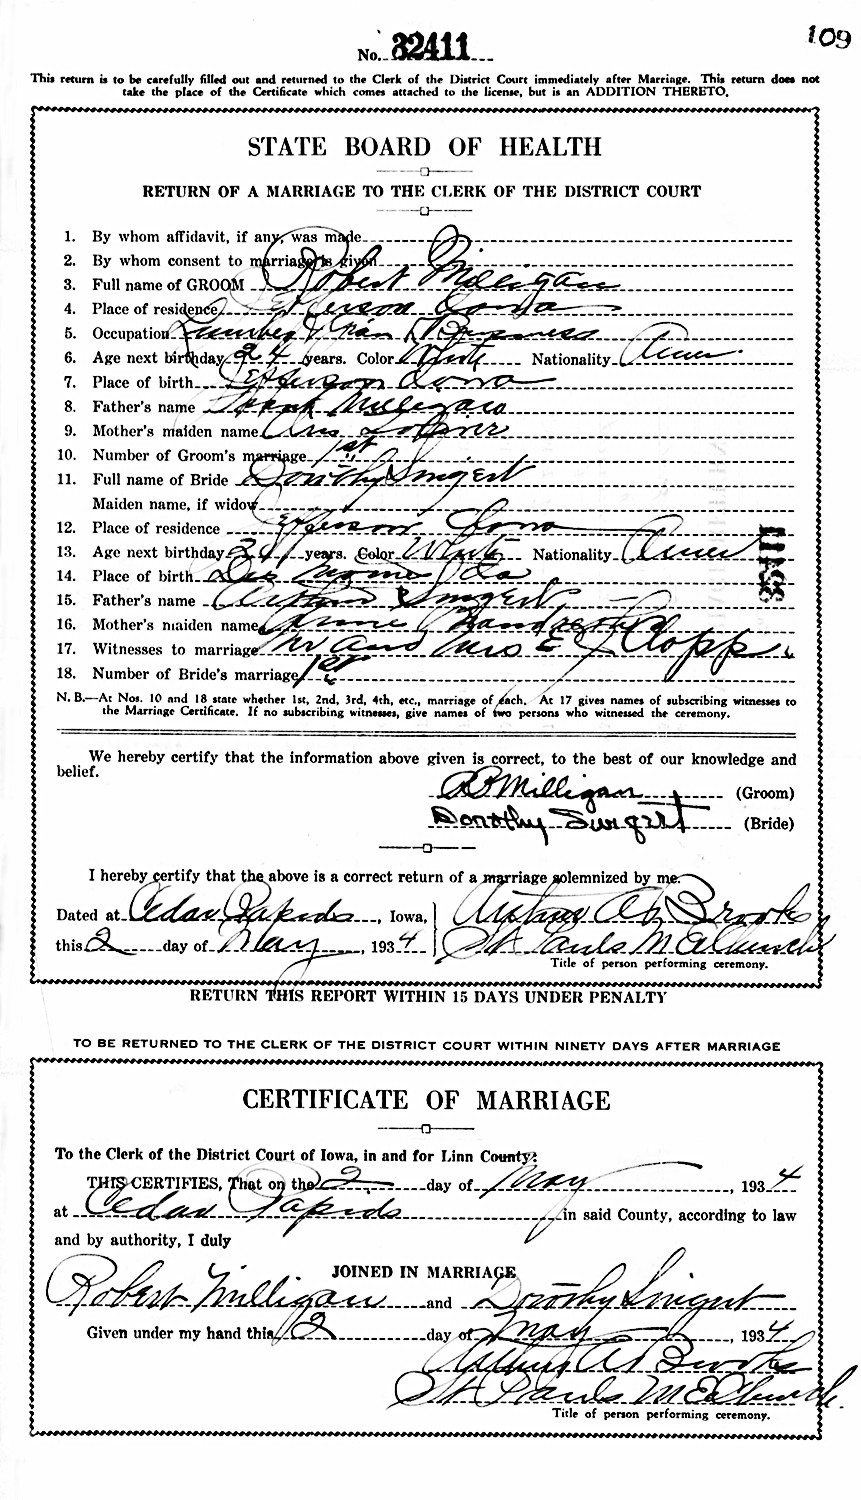 109
No. 32411
This return is to be carefully filled out and returned to the Clerk of the District Court immediately after Marriage. This return does not
take the place of the Certificate which comes attached to the license, but is an ADDITION THERETO.
STATE BOARD OF HEALTH
RETURN OF A MARRIAGE TO THE CLERK OF THE DISTRICT COURT
1. By whom affidavit, if any, was made
2. By whom consent to marriage is given
3. Full name of GROOM Robert Milligan
4. Place of residence Jefferson Iowa
5. Occupation Lumber & Grain Business
6. Age next birthday 24 years. Color White Nationality Amer.
7. Place of birth Jefferson Iowa
8. Father's name Frank Milligan
9. Mother's maiden name
10. Number of Groom's marriage 1st
11. Full name of Bride Dorothy Swigert
Maiden name, if widow
12. Place of residence Jefferson Iowa
13. Age next birthday years. Color White Nationality Amer
14. Place of birth Des Moines Ia
15. Father's name Arthur Swigert
16. Mother's maiden name
17. Witnesses to marriage Mr and Mrs E J Clopp
18. Number of Bride's marriage 1st
32411
N. B.—At Nos. 10 and 18 state whether 1st, 2nd, 3rd, 4th, etc., marriage of each. At 17 gives names of subscribing witnesses to
the Marriage Certificate. If no subscribing witnesses, give names of two persons who witnessed the ceremony.
We hereby certify that the information above given is correct, to the best of our knowledge and
belief.
RB Milligan (Groom)
Dorothy Swigert (Bride)
I hereby certify that the above is a correct return of a marriage solemnized by me.
Dated at Cedar Rapids, Iowa, Arthur A Brooks
this 2 day of May, 1934 St Pauls M E Church
Title of person performing ceremony.
RETURN THIS REPORT WITHIN 15 DAYS UNDER PENALTY
TO BE RETURNED TO THE CLERK OF THE DISTRICT COURT WITHIN NINETY DAYS AFTER MARRIAGE
CERTIFICATE OF MARRIAGE
To the Clerk of the District Court of Iowa, in and for Linn County:
THIS CERTIFIES, That on the 2 day of May, 1934
at Cedar Rapids in said County, according to law
and by authority, I duly
JOINED IN MARRIAGE
Robert Milligan and Dorothy Swigert
Given under my hand this 2 day of May, 1934
Arthur A Brooks
St Pauls M E Church.
Title of person performing ceremony.